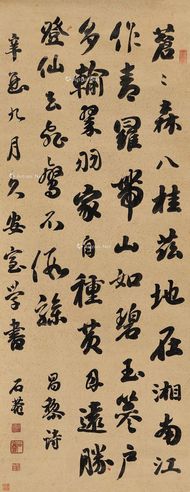 蒼〻森八桂茲地在湘南江
作青羅帶山如碧玉篸戶
多輸翠羽家自種黃甘遠勝
登仙去飛鸞不假驂 昌黎詩
辛亥九月久安室學書 石菴